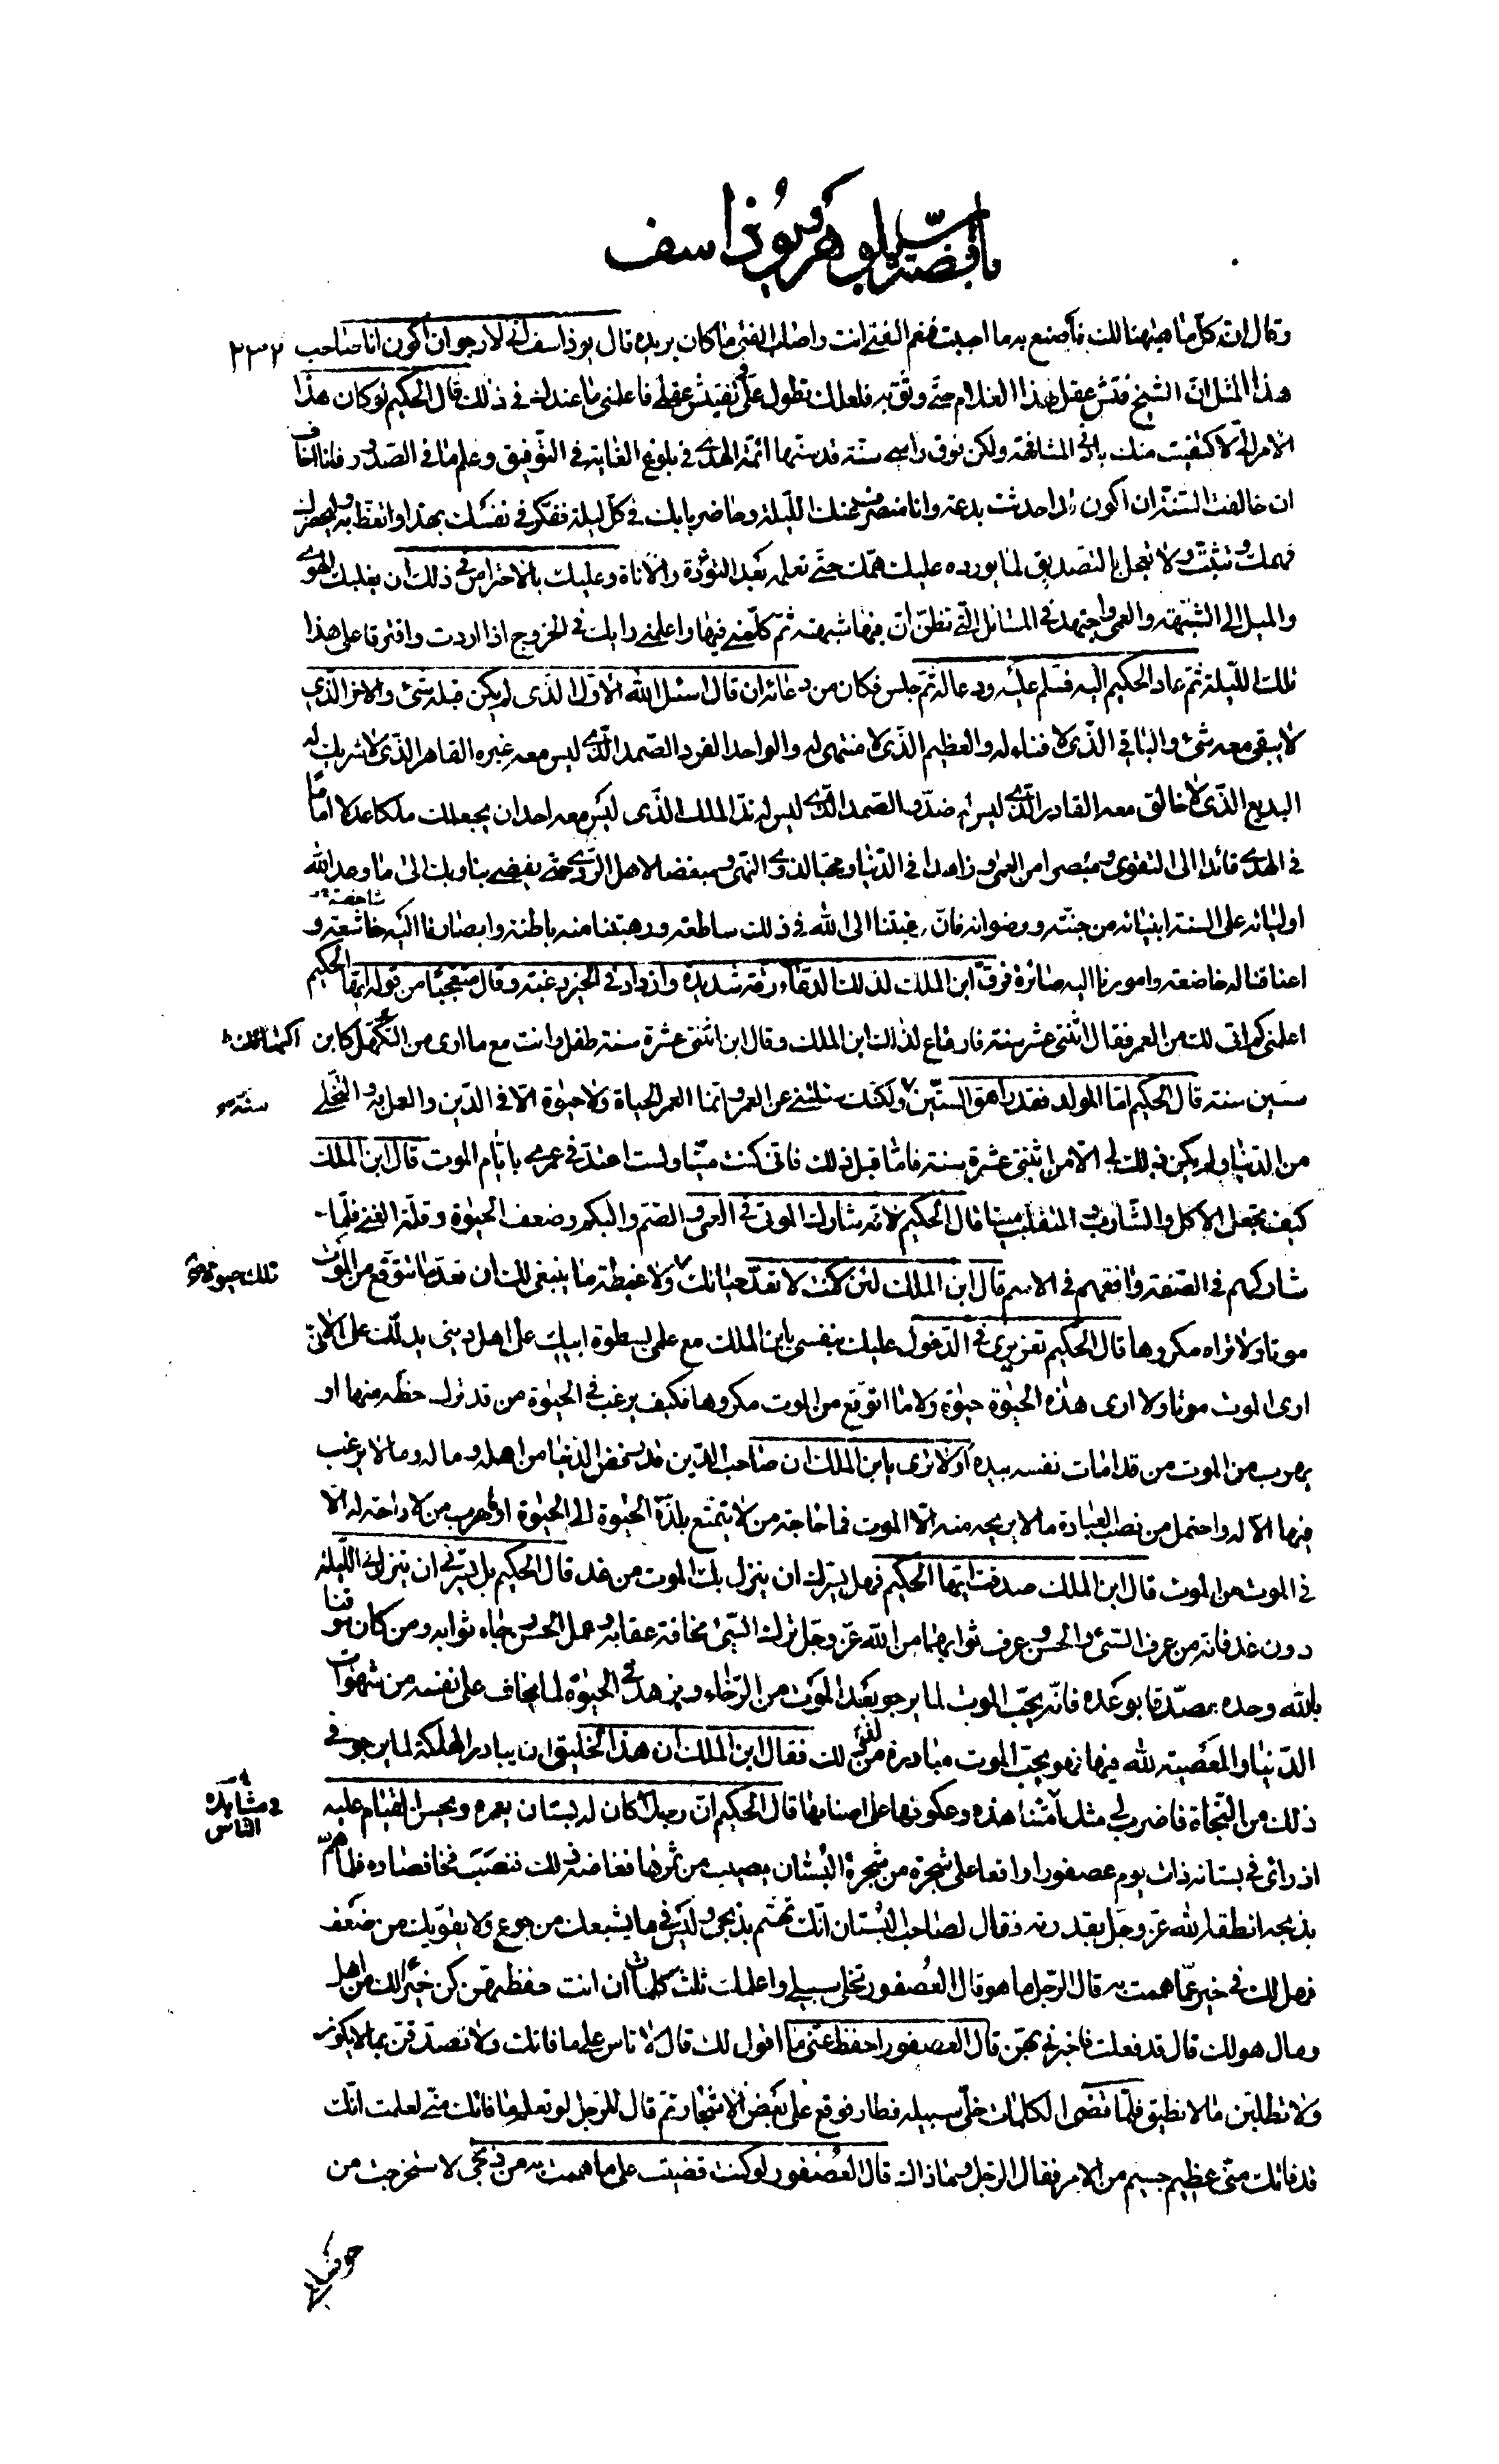 باقصّة بلوهر وبوذاسف
٢٣٢
وقال ان كلّ ما هيهنا لك فاصنع به ما احببت فنعم الفتى انت واصاب الفتى ما كان يريده قال يوذاسف انّى لارجو ان اكون انا صاحب
هذا المثل انّ الشيخ فتّش عقل هذا الغلام حتّى وثق به فلعلك تطول علىّ فى تفتيش عقلى فاعلمنى ما عندك فى ذلك قال الحكيم لو كان هذا
الامر الىّ لاكتفيت منك بادنى المشافهة ولكن فوق راسى سنّة قد سنّها ائمّة الهدى فى بلوغ الغاية فى التّوفيق وعلم ما فى الصّدور فانا اخاف
ان خالفت السّنّة ان اكون قد احدثت بدعة وانا منصرف عنك اللّيلة وحاضر بابك فى كلّ ليلة ففكّر فى نفسك بهذا واتّعظ به وليحضرك
فهمك وتثبّت ولا تعجل بالتصديق لما يورده عليك همّك حتّى تعلمه بعد التؤدة والاناة وعليك بالاحتراس فى ذلك ان يغلبك الهوى
والميل الى الشّبهة والعمى واجتهد فى المسائل الّتى تظنّ انّ فيها شبهة ثمّ كلّمنى فيها واعلمنى رايك فى الخروج اذا اردت وافترقا على هذا
تلك اللّيلة ثمّ عاد الحكيم اليه فسلّم عليه ودعا له ثمّ جلس فكان من دعائه ان قال اسئل الله الاوّل الّذى لم يكن قبله شئ والاخر الّذى
لا يبقى معه شئ والباقى الّذى لا فناء له والعظيم الّذى لا منتهى له والواحد الفرد الصّمد الّذى ليس معه غيره القاهر الّذى لا شريك له
البديع الّذى لا خالق معه القادر الّذى ليس له ضدّ الصّمد الّذى ليس له ندّ الملك الّذى ليس معه احد ان يجعلك ملكا عدلا اماما
فى الهدى قائدا الى التقوى ومبصرا من العمى وزاهدا فى الدّنيا ومحبّا لذوى النّهى ومبغضا لاهل الرّدى حتّى يفضى بنا وبك الى ما وعد الله
اوليائه على السنة انبيائه من جنّته ورضوانه فانّ رغبتنا الى الله فى ذلك ساطعة ورهبتنا منه باطنة وابصارنا اليه خاشعة و
شاخصة
اعناقنا له خاضعة وامورنا اليه صائرة فرقّ ابن الملك لذلك الدّعاء رقّة شديدة وازداد فى الخير رغبة وقال متعجّبا من قوله ايّها الحكيم
اعلمنى كم اتى لك من العمر فقال اثنتى عشر سنة فارتاع لذلك ابن الملك وقال ابن اثنتى عشرة سنة طفل وانت مع ما ارى من التّكهّل كابن
ستّين سنة قال الحكيم امّا المولد فقد راهق السّتّين ولكنّك سئلتنى عن العمر وانّما العمر الحياة ولا حيوة الّا فى الدّين والعمل به والتّخلّى
سنة
من الدّنيا ولم يكن ذلك لى الّا من اثنتى عشرة سنة فامّا قبل ذلك فانّى كنت ميّتا ولست اعتدّ فى عمرى بايّام الموت قال ابن الملك
كيف تجعل الاكل والشّارب والمتقلّب ميتا قال الحكيم لانّه شارك الموتى فى العمى والصّمم والبكم وضعف الحيوة وقلّة الغنى فلمّا
شاركهم فى الصّفة وافقهم فى الاسم قال ابن الملك لئن كنت لا تعدّ حياتك ولا غبطة ما ينبغى لك ان تعدّ ما تتوقّع من الموت
تلك حيوة
موتا ولا تراه مكروها قال الحكيم تغريرى فى الدّخول عليك بنفسى يابن الملك مع علمى بسطوة ابيك على اهل دينى يدلّك على انّى لا
ارى الموت موتا ولا ارى هذه الحيوة حيوة ولا ما اتوقّع من الموت مكروها فكيف يرغب فى الحيوة من قد ترك حظّه منها او
يهرب من الموت من قد امات نفسه بيده اولا ترى يابن الملك ان صاحب الدّين قد رفض الدّنيا من اهله وماله وما لا يرغب
فيها الّا له واحتمل من نصب العبادة ما لا يريحه منه الّا الموت فما حاجة من لا يتمتّع بلذّة الحيوة الى الحيوة او يهرب من لا راحة له الّا
فى الموت من الموت قال ابن الملك صدقت ايّها الحكيم فهل يسرّك ان ينزل بك الموت من غد قال الحكيم بل يسرّنى ان ينزل بى اللّيلة
دون غد فانّه من عرف السّئ والحسن وعرف ثوابهما من الله عزّ وجلّ ترك السّئ مخافة عقابه وعمل الحسن رجاء ثوابه ومن كان موقنا
بالله وحده مصدّقا بوعده فانّه يحبّ الموت لما يرجو بعد الموت من الرّخاء ويزهد فى الحيوة لما يخاف على نفسه من شهوات
الدّنيا والمعصية لله فيها فهو يحبّ الموت مبادرة من ذلك فقال ابن الملك ان هذا لخليق ان يبادر الهلكة لما يرجو فى
ذلك من النّجاة فاضرب لى مثل امّتنا هذه وعكوفها على اصنامها قال الحكيم انّ رجلا كان له بستان يعمره ويحسن القيام عليه
اذ رأى فى بستانه ذات يوم عصفورا واقعا على شجرة من شجرة البستان يصيب من ثمرها فغاضه ذلك فنصب فخا فصاده فلمّا همّ
بذبحه انطقه الله عزّ وجلّ بقدرته فقال لصاحب البستان انّك تهتمّ بذبحى وليس فىّ ما يشبعك من جوع ولا يقوّيك من ضعف
فهل لك فى خير ممّا هممت به قال الرّجل ما هو قال العصفور تخلّى سبيلى واعلمك ثلث كلمات ان انت حفظتهنّ كنّ خيرا لك من اهل
ومال هو لك قال قد فعلت فاخبرنى بهنّ قال العصفور احفظ عنّى ما اقول لك قال لا تاس على ما فاتك ولا تصدّقنّ بما لا يكون
ولا تطلبنّ ما لا تطيق فلمّا قضى الكلمات خلّى سبيله فطار فوقع على بعض الاشجار ثمّ قال للرّجل لو تعلم ما فاتك منّى لعلمت انّك
قد فاتك منّى عظيم جسيم من الامر فقال الرّجل وما ذاك قال العصفور لو كنت قضيت على ما هممت به من ذبحى لاستخرجت من